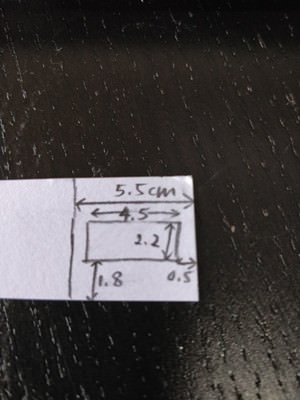 5.5cm
4.5
2.2
1.8 0.5